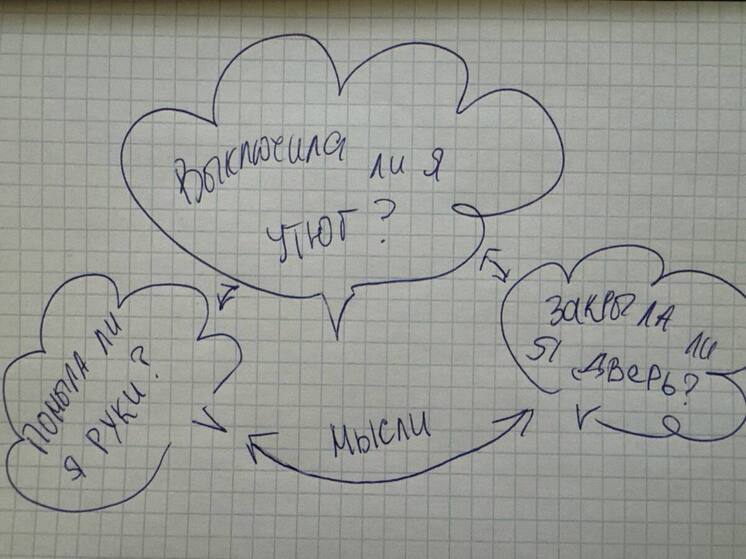 Выключила ли я
утюг?
Помыла ли
я руки?
Закрыла ли
я дверь?
мысли